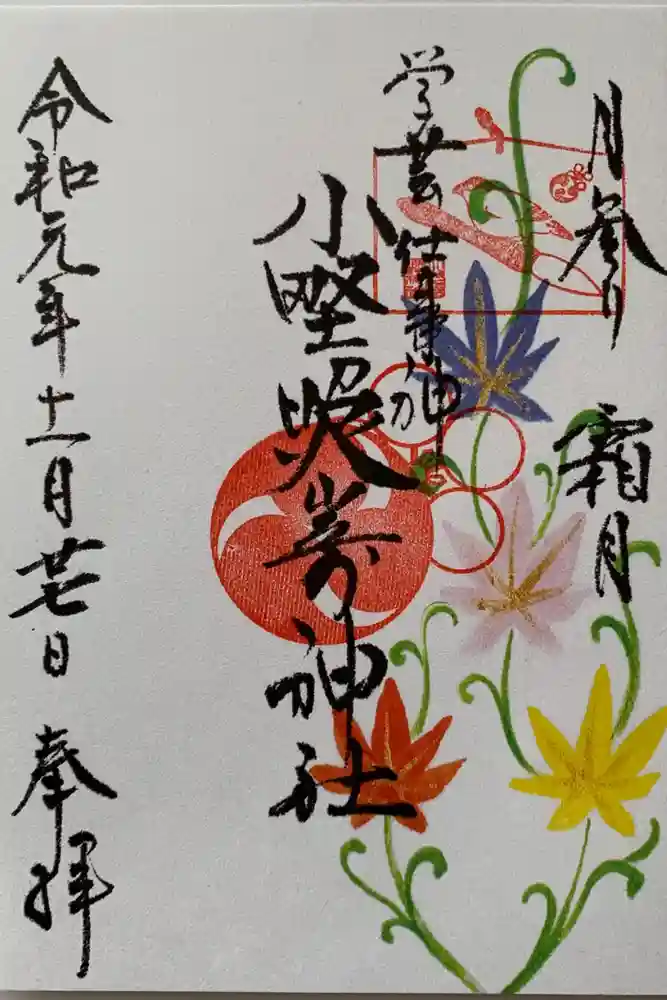 月参り 霜月
学芸仕事神
小野照崎神社
令和元年十一月廿七日 奉拝